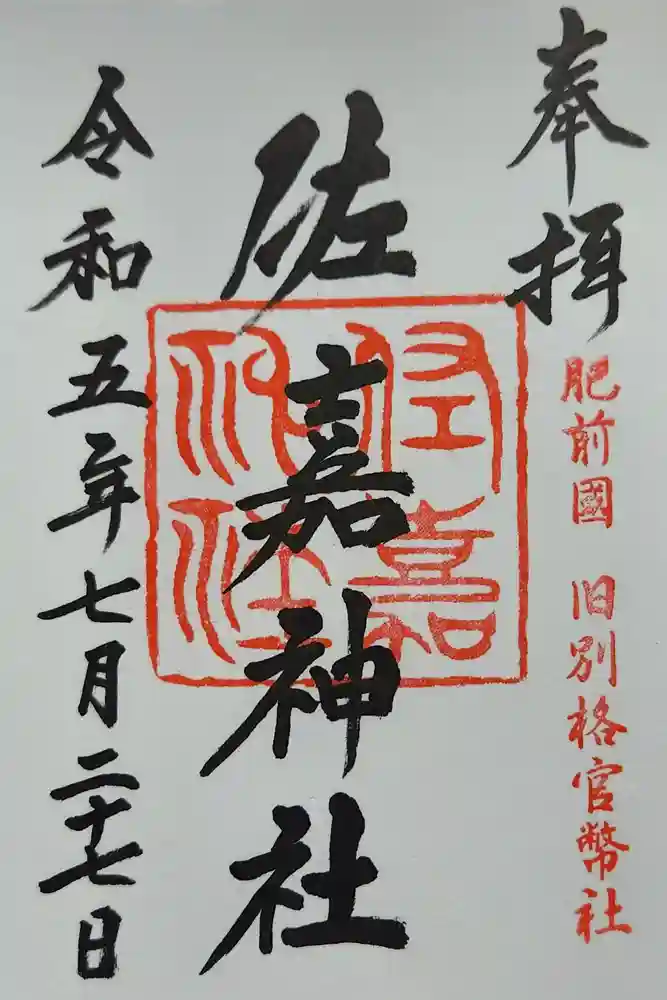 奉拝
肥前國 旧別格官幣社
佐嘉神社
佐嘉神社
令和五年七月二十七日